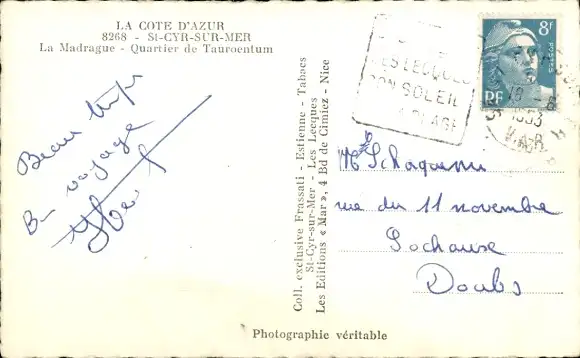 LA COTE D'AZUR
8268 - St-CYR-SUR-MER
La Madrague - Quartier de Tauroentum
Beau temps
Bon voyage
LES LECQUES
SON SOLEIL
SA PLAGE
8f
POSTES
RF
19 -8
1953
VAR
Coll. exclusive Frassati - Estienne - Tabacs
St-Cyr-sur-Mer - Les Lecques
Les Editions « Mar », 4 Bd de Cimiez - Nice
rue du 11 novembre
Sochaux
Doubs
Photographie véritable